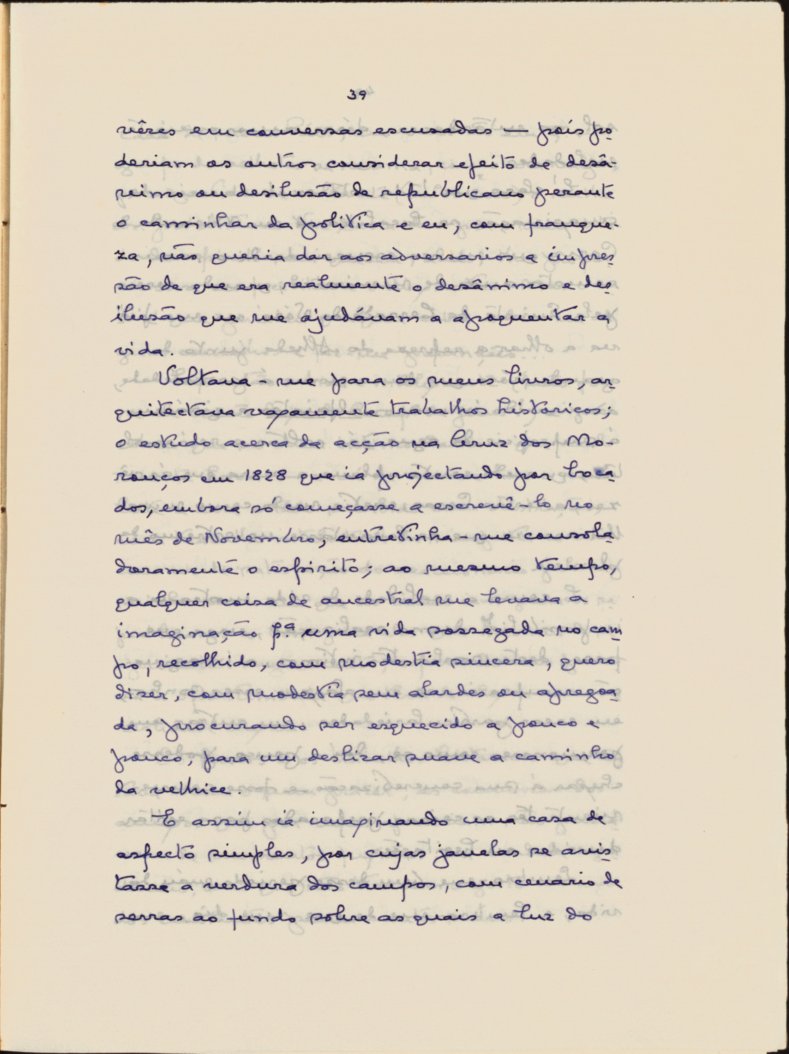 39
vêzes em conversas escusadas — pois po
deriam os outros considerar efeito de desâ-
nimo ou desilusão de republicano perante
o caminhar da politica e eu, com franque-
za, não queria dar aos adversarios a impres
são de que era realmente o desânimo e des
ilusão que me ajudávam a apoquentar a
vida.
Voltava-me para os meus livros, ar
quitectava vagamente trabalhos históricos;
o estudo acerca da acção na Cruz dos Mo-
rouços em 1828 que ia projectando por boca
dos, embora só começasse a escrevê-lo no
mês de Novembro, entretinha-me consola
doramente o espirito; ao mesmo tempo,
qualquer coisa de ancestral me levava a
imaginação p.ª uma vida sossegada no cam
po, recolhido, com modestia sincera, quero
dizer, com modestia sem alardes ou apregoa
da, procurando ser esquecido a pouco e
pouco, para um deslizar suave a caminho
da velhice.
E assim ia imaginando uma casa de
aspecto simples, por cujas janelas se avis
tasse a verdura dos campos, com cenario de
serras ao fundo sobre as quais a luz do